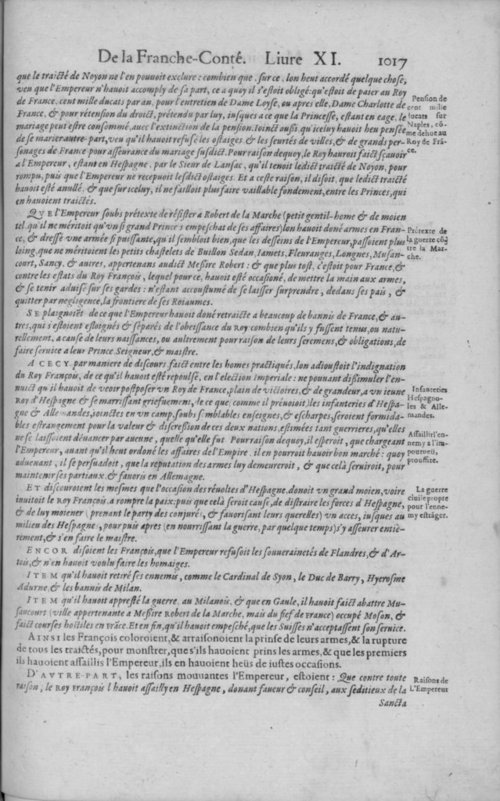 De la Franche-Conté. Liure XI. 1017
que le traicté de Noyon ne l'en pouuoit exclure: combien que, sur ce, lon heut accordé quelque chose,
veu que l'Empereur n'hauoit accomply de sa part, ce a quoy il s'estoit obligé: qu'estoit de païer au Roy
de France, cent mille ducats par an, pour l'entretien de Dame Loyse, ou apres elle, Dame Charlotte de
France, & pour rétension du droict, prétendu par luy, iusques a ce que la Princesse, estant en eage, le
mariage peut estre consommé, auec l'extinction de la pension. ioinct aussi, qu'iceluy hauoit heu pensée
de se marier autre-part, veu qu'il hauoit refusé les ostaiges & les seurtés de villes, & de grands per-
sonages de France pour asseurance du mariage susdict. Pour raison dequoy, le Roy hauroit faict sçauoir
a l'Empereur, estant en Hespagne, par le Sieur de Lansac, qu'il tenoit ledict traicté de Noyon, pour
rompu, puis que l'Empereur ne recepuoit lesdict ostaiges. Et a ceste raison, il disoit, que ledict traicté
hauoit esté annullé, & que sur celuy, il ne failloit plus faire vaillable fondement, entre les Princes, qui
en hauoient traictés.
Pension de
cent mille
ducats sur
Naples, cō-
me dehoe au
Roy de Frā-
ce.
QVE l'Empereur soubs prétexte de résister a Robert de la Marche (petit gentil-heme & de moien
tel, qu'il ne méritoit qu'vn si grand Prince s'empeschat de ses affaires) lon hauoit doné armes en Fran-
ce, & dressé vne armée si puissante, qu'il sembloit bien, que les desseins de l'Empereur, passoient plus
loing, que ne méritoient les petits chastelets de Buillon Sedan, Iamets, Fleuranges, Longnes, Musan-
court, Sancy, & autres, appertenans audict Messire Robert: & que plus tost, c'estoit pour France, &
contre les estats du Roy François, lequel pour ce, hauoit esté occasioné, de mettre la main aux armes,
& se tenir aduisé sur ses gardes: n'estant accoustumé de se laisser surprendre, dedans ses païs, &
quitter par negligence, la frontiere de ses Roiaumes.
Prétexte de
la guerre cōtre
la Mar-
che.
SE plaignoit de ce que l'Empereur hauoit doné retraicte a beaucoup de bannis de France, & au-
tres, qui s'estoient estoignés & séparés de l'obeissance du Roy combien qu'ils y fussent tenus, ou natu-
rellement, a cause de leurs naissances, ou aultrement pour raison de leurs seremens, & obligations, de
faire seruice a leur Prince Seigneur, & maistre.
A CECY par maniere de discours faict entre les homes practiqués, lon adioustoit l'indignation
du Roy François, de ce qu'il hauoit esté repoulsé, en l'election Imperiale: ne pouuant dissimuler l'en-
nuict qu'il hauoit de veoir postposer vn Roy de France, plain de victoires, & de grandeur, a vn ieune
Roy d'Hespagne & se marrissant griefuement, de ce que comme il préuoioit, les infanteries d'Hespa-
gne & Allemandes, ioinctes en vn camp, soubs semblables enseignes, & escharpes, seroient formida-
bles estrangement pour la valeur & discresion de ces deux nations, estimées tant guerrieres, qu'elles
ne se laissoient déuancer par aucune, quelle qu'elle fut. Pour raison dequoy, il esperoit, que chargeant
l'Empereur, auant qu'il heut ordoné les affaires de l'Empire, il en pourroit hauoir bon marché: quoy
aduenant, il se persuadoit, que la reputation des armes luy demeureroit, & que celà seruiroit, pour
maintenir ses partiaux & fauoris en Allemagne.
Infanteries
Hespagno-
les & Alle-
mandes.
Assaillir l'en-
nemy a l'im-
pourueü,
prouffite.
ET discouroient les mesmes que l'occasion des réuoltes d'Hespagne, donoit vn grand moien, voire
inuitoit le Roy François, a rompre la paix: puis que celà seroit cause, de distraire les forces d'Hespagne,
& de luy moiener (prenant le party des coniurés, & fauorisant leurs querelles) vn acces, iusques au
milieu des Hespagne, pour puis apres (en nourrissant la guerre, par quelque temps) s'y asseurer entie-
rement, & s'en faire le maistre.
La guerre
ciuile propre
pour l'enne-
my estrāger.
ENCOR disoient les François, que l'Empereur refusoit les souueraïnetés de Flandres, & d'Ar-
tois, & n'en hauoit voulu faire les homaiges.
ITEM qu'il hauoit retiré ses ennemis, comme le Cardinal de Syon, le Duc de Barry, Hyerosme
Adurne, & les bannis de Milan.
ITEM qu'il hauoit appresté la guerre, au Milanois, & que en Gaule, il hauoit faict abattre Mu-
saucourt (ville appertenante a Messire Robert de la Marche, mais du fief de france) occupé Moson, &
faict courses hostiles en icelle. Et en fin, qu'il hauoit empesché, que les Suisses n'acceptassent son seruice.
AINSI les François coloroient, & arraisonoient la prinse de leurs armes, & la rupture
de tous les traictés, pour monstrer, que s'ils hauoient prins les armes, & que les premiers
ils hauoient assaillis l'Empereur, ils en hauoient heüs de iustes occasions.
D'AVTRE-PART, les raisons mouuantes l'Empereur, estoient: Que contre toute
raison, le Roy François l'hauoit assailly en Hespagne, donant faueur & conseil, aux seditieux de la
Raisons de
L'Empereur
Sancta